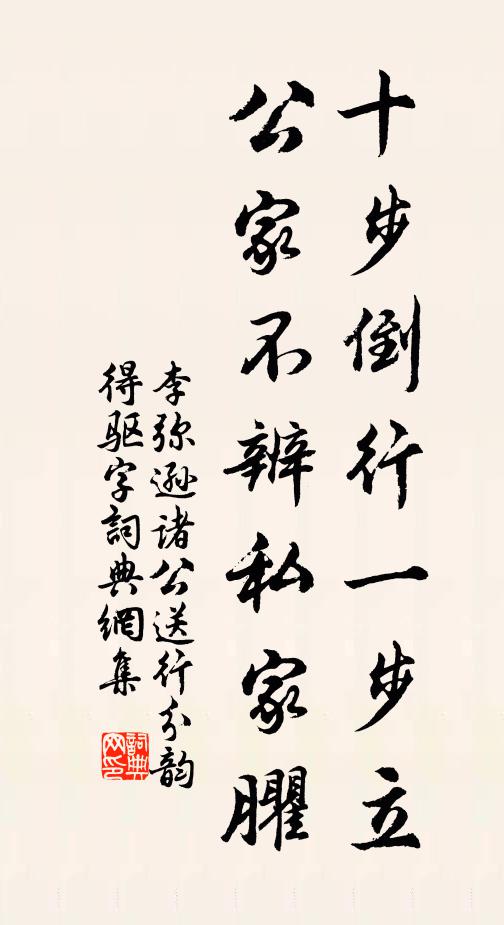 十步倒行一步立
公家不辨私家臞
李弥遜诸公送行分韵
得驱字詞典網集
詞典网印